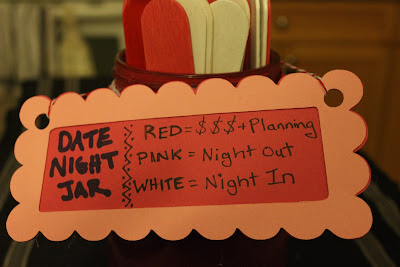 DATE
NIGHT
JAR
RED = $$$ + Planning
PINK = Night Out
WHITE = Night In